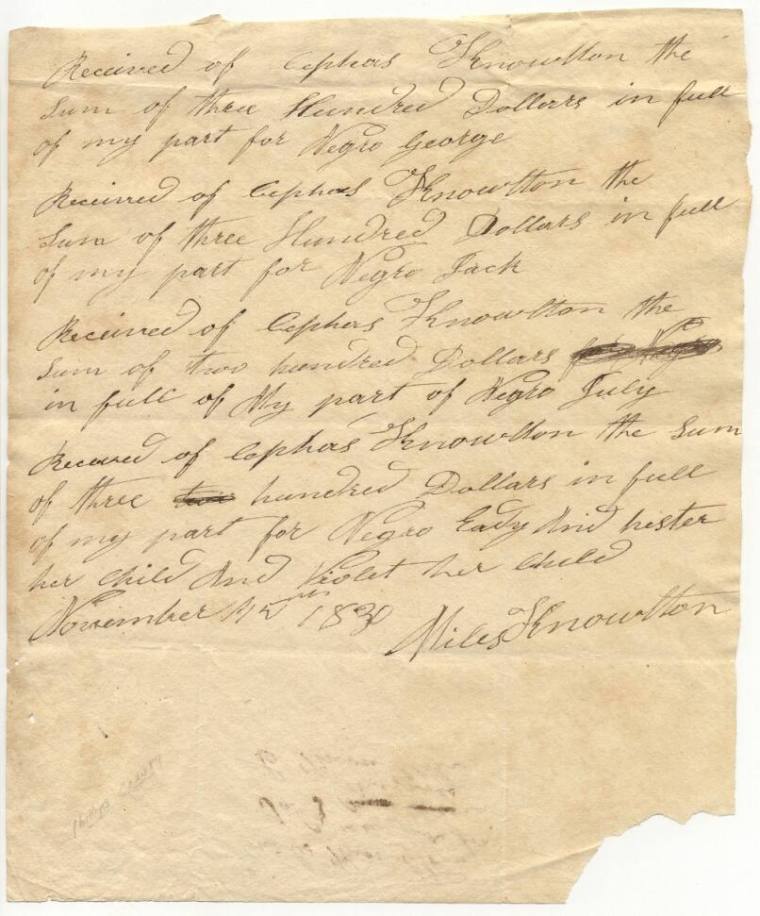 Received of Cephas Knowlton the
Sum of three Hundred Dollars in full
of my part for Negro George
Received of Cephas Knowlton the
Sum of three Hundred Dollars in full
of my part for Negro Jack
Received of Cephas Knowlton the
Sum of two hundred Dollars
in full of My part of Negro July
Receved of Cephas Knowlton the Sum
of three two hundred Dollars in full
of my part for Negro Eady And hester
her Child And Violet her Child
November 1830
Miles Knowlton